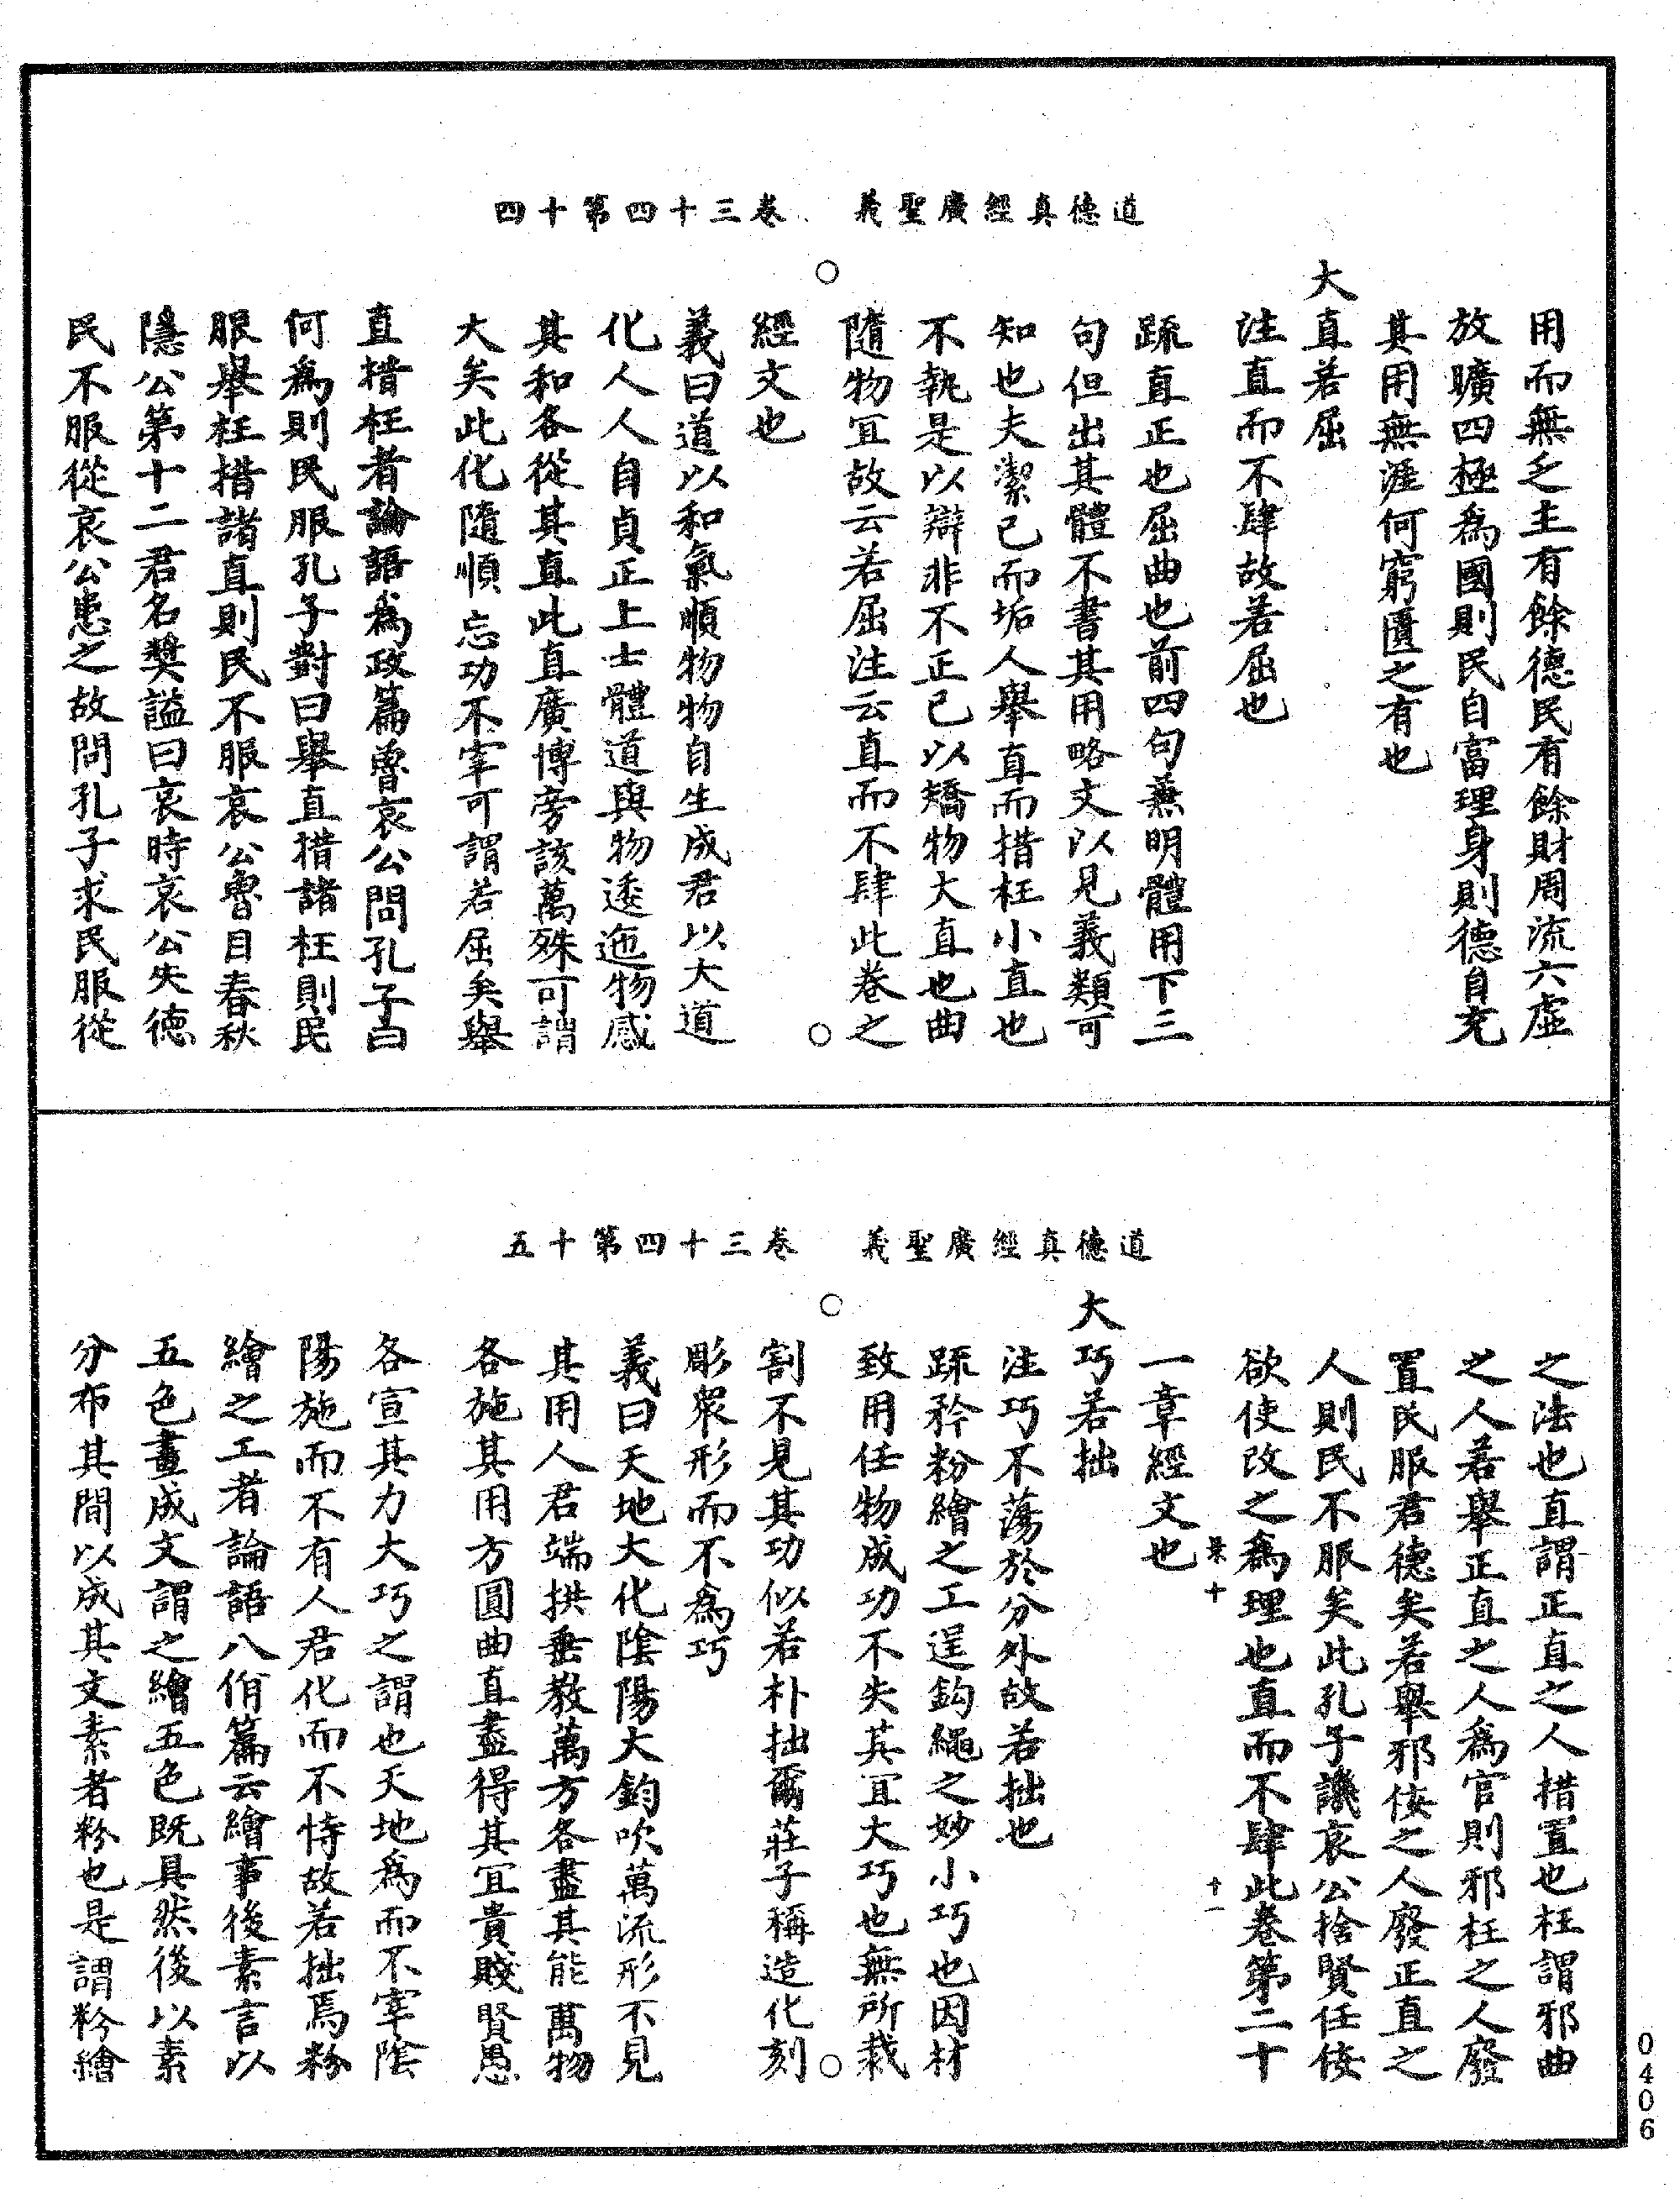 道德真經廣聖義　卷三十四第十四
用而無乏主有餘德民有餘財周流六虛
放曠四極為國則民自富理身則德自充
其用無涯何窮匱之有也
大直若屈
注直而不肆故若屈也
疏直正也屈曲也前四句兼明體用下三
句但出其體不書其用略文以見義類可
知也夫潔己而垢人舉直而措枉小直也
不執是以辯非不正己以矯物大直也曲
隨物宜故云若屈注云直而不肆此卷之
經文也
義曰道以和氣順物物自生成君以大道
化人人自貞正上士體道與物逶迤物感
其和各從其直此直廣博旁該萬殊可謂
大矣此化隨順忘功不宰可謂若屈矣舉
直措枉者論語為政篇魯哀公問孔子曰
何為則民服孔子對曰舉直措諸枉則民
服舉枉措諸直則民不服哀公魯目春秋
隱公第十二君名獎謚曰哀時哀公失德
民不服從哀公患之故問孔子求民服從
道德真經廣聖義　卷三十四第十五
之法也直謂正直之人措置也枉謂邪曲
之人若舉正直之人為官則邪枉之人廢
置民服君德矣若舉邪佞之人廢正直之
人則民不服矣此孔子譏哀公捨賢任佞
欲使改之為理也直而不肆此卷第二十
十 十一
一章經文也
大巧若拙
注巧不蕩於分外故若拙也
疏矜粉繪之工逞鈎繩之妙小巧也因材
致用任物成功不失其宜大巧也無所裁
割不見其功似若朴拙爾莊子稱造化刻
彫眾形而不為巧
義曰天地大化陰陽大鈞吹萬流形不見
其用人君端拱垂教萬方各盡其能萬物
各施其用方圓曲直盡得其宜貴賤賢愚
各宣其力大巧之謂也天地為而不宰陰
陽施而不有人君化而不恃故若拙焉粉
繪之工者論語八佾篇云繪事後素言以
五色畫成文謂之繪五色既具然後以素
分布其間以成其文素者粉也是謂粉繪
0406